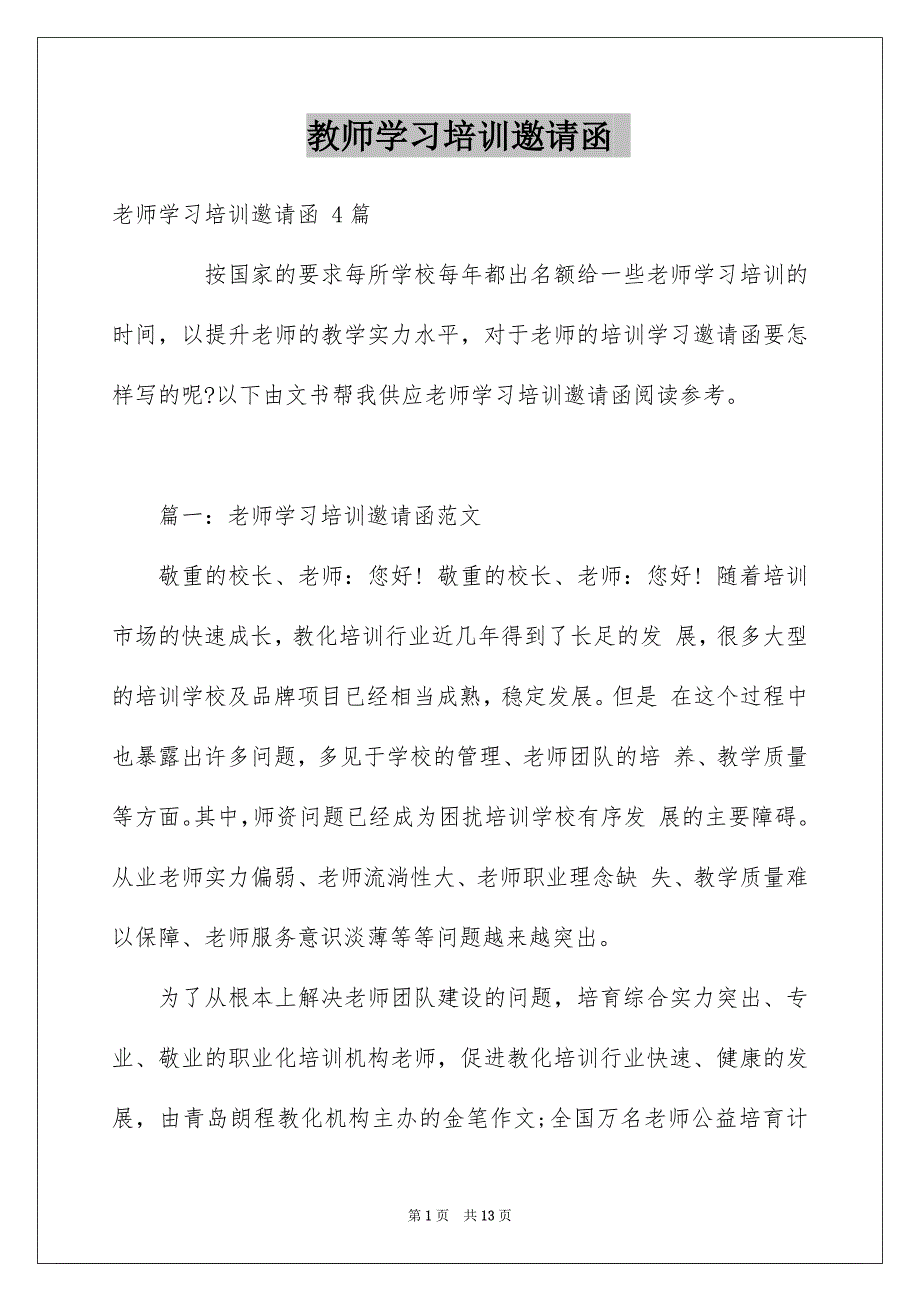 教师学习培训邀请函
老师学习培训邀请函 4篇
按国家的要求每所学校每年都出名额给一些老师学习培训的
时间，以提升老师的教学实力水平，对于老师的培训学习邀请函要怎
样写的呢?以下由文书帮我供应老师学习培训邀请函阅读参考。
篇一：老师学习培训邀请函范文
敬重的校长、老师：您好! 敬重的校长、老师：您好! 随着培训
市场的快速成长，教化培训行业近几年得到了长足的发 展，很多大型
的培训学校及品牌项目已经相当成熟，稳定发展。但是 在这个过程中
也暴露出许多问题，多见于学校的管理、老师团队的培 养、教学质量
等方面。其中，师资问题已经成为困扰培训学校有序发 展的主要障碍。
从业老师实力偏弱、老师流淌性大、老师职业理念缺 失、教学质量难
以保障、老师服务意识淡薄等等问题越来越突出。
为了从根本上解决老师团队建设的问题，培育综合实力突出、专
业、敬业的职业化培训机构老师，促进教化培训行业快速、健康的发
展，由青岛朗程教化机构主办的金笔作文;全国万名老师公益培育计
第 1 页 共 13 页